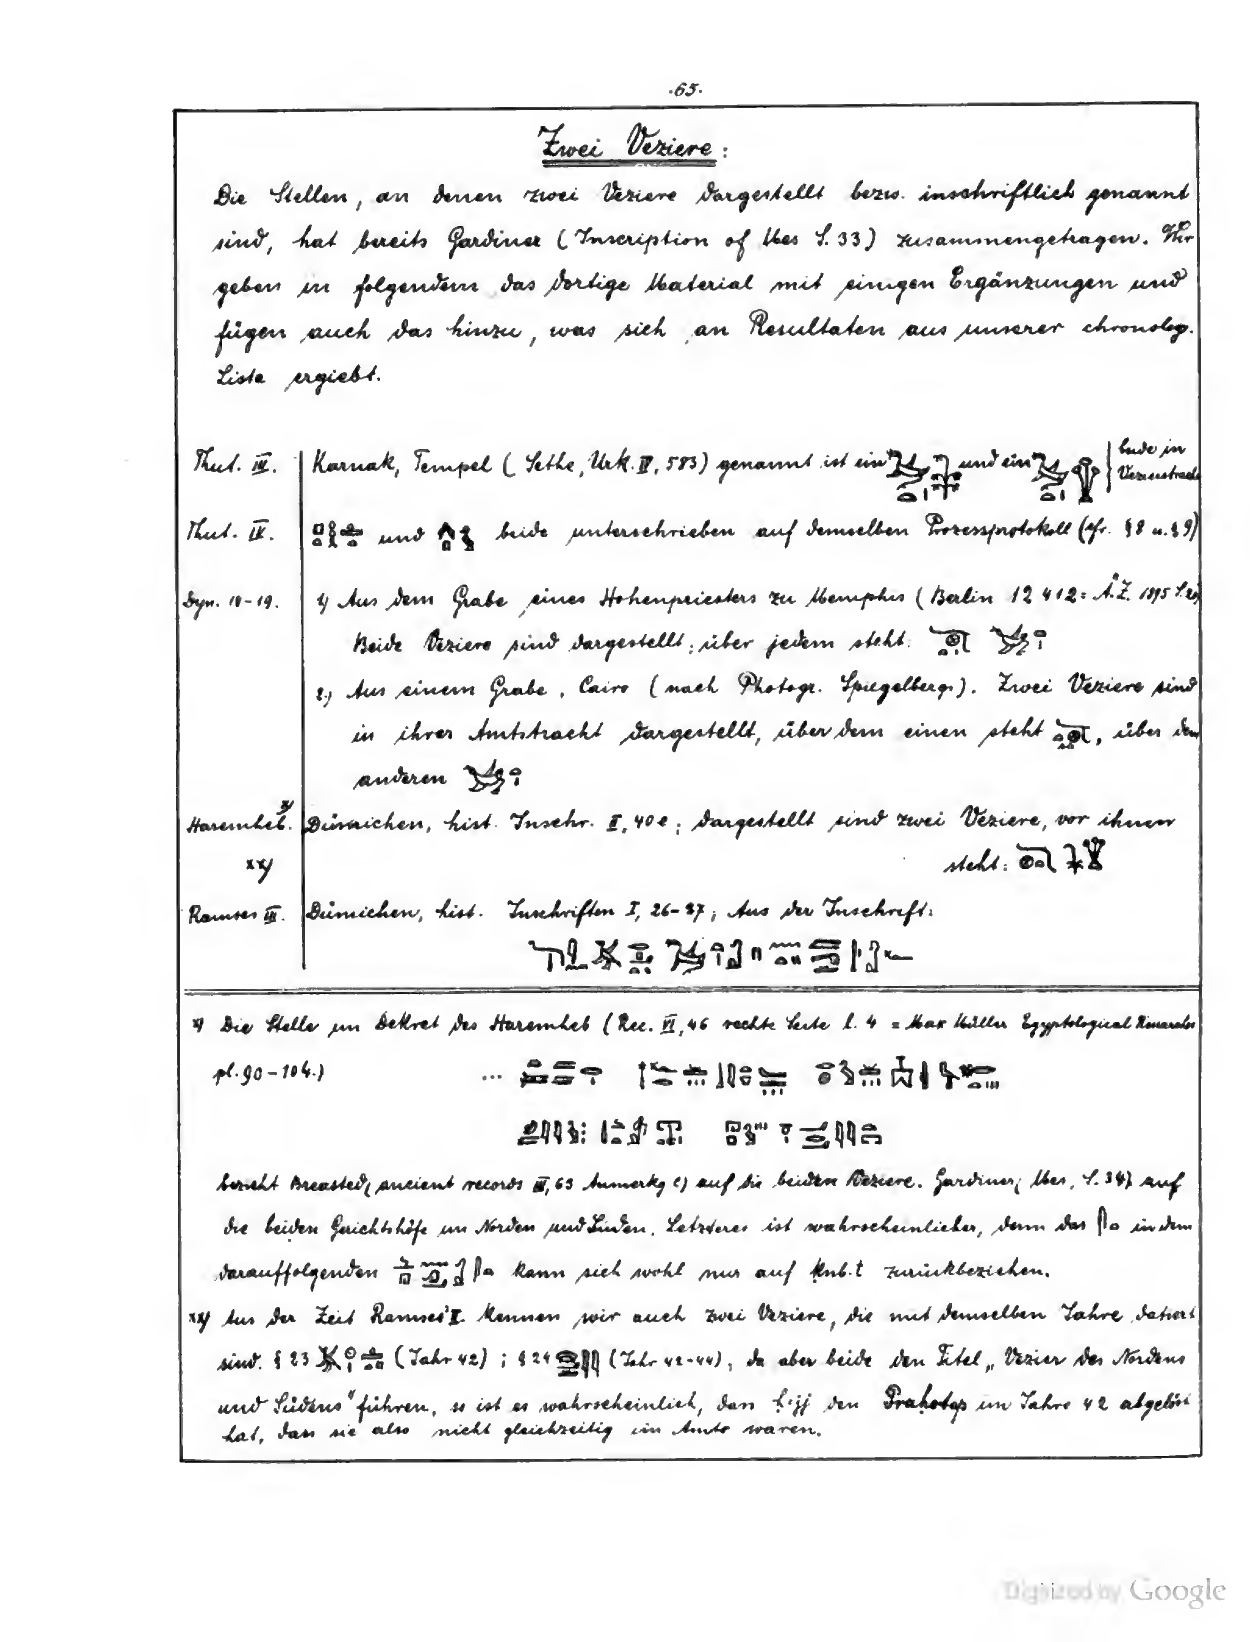 ·65·
Zwei Veziere:
Die Stellen, an denen zwei Veziere dargestellt bezw. inschriftlich genannt
sind, hat bereits Gardiner (Inscription of Mes S. 33) zusammengetragen. Wir
geben in folgendem das dortige Material mit einigen Ergänzungen und
fügen auch das hinzu, was sich an Resultaten aus unserer chronolog.
Liste ergiebt.
Thut. III. Karnak, Tempel (Sethe, Urk. IV, 583) genannt ist ein und ein beide in
Vezierstracht
Thut. IV. und beide unterschrieben auf demselben Prozessprotokoll (cfr. § 8 u. § 9)
Dyn. 18-19. 1) Aus dem Grabe eines Hohenpriesters zu Memphis (Berlin 12412 = Ä.Z. 1895 S.
Beide Veziere sind dargestellt; über jedem steht:
2.) Aus einem Grabe, Cairo (nach Photogr. Spiegelbergs). Zwei Veziere sind
in ihrer Amtstracht dargestellt, über dem einen steht , über dem
anderen
Haremheb. x) Dümichen, hist. Inschr. II, 40e; dargestellt sind zwei Veziere, vor ihnen
xx) steht:
Ramses III. Dümichen, hist. Inschriften I, 26-27; Aus der Inschrift:
x) Die Stelle im Dekret des Haremheb (Rec. VI, 46 rechte Seite l. 4 = Max Müller Egyptological Researches
pl. 90-104.) ...
bezieht Breasted (ancient records III, 63 Anmerkg c) auf die beiden Veziere. Gardiner (Mes, S. 34) auf
die beiden Gerichtshöfe im Norden und Süden. Letzteres ist wahrscheinlicher, denn das in dem
darauffolgenden kann sich wohl nur auf ḳnb.t zurückbeziehen.
xx) Aus der Zeit Ramses' II. kennen wir auch zwei Veziere, die mit demselben Jahre datiert
sind: § 23 (Jahr 42); § 24 (Jahr 42-44), da aber beide den Titel „Vezier des Nordens
und Südens" führen, so ist es wahrscheinlich, dass den Prahotep im Jahre 42 abgelöst
hat, dass sie also nicht gleichzeitig im Amte waren.
Digitized by Google